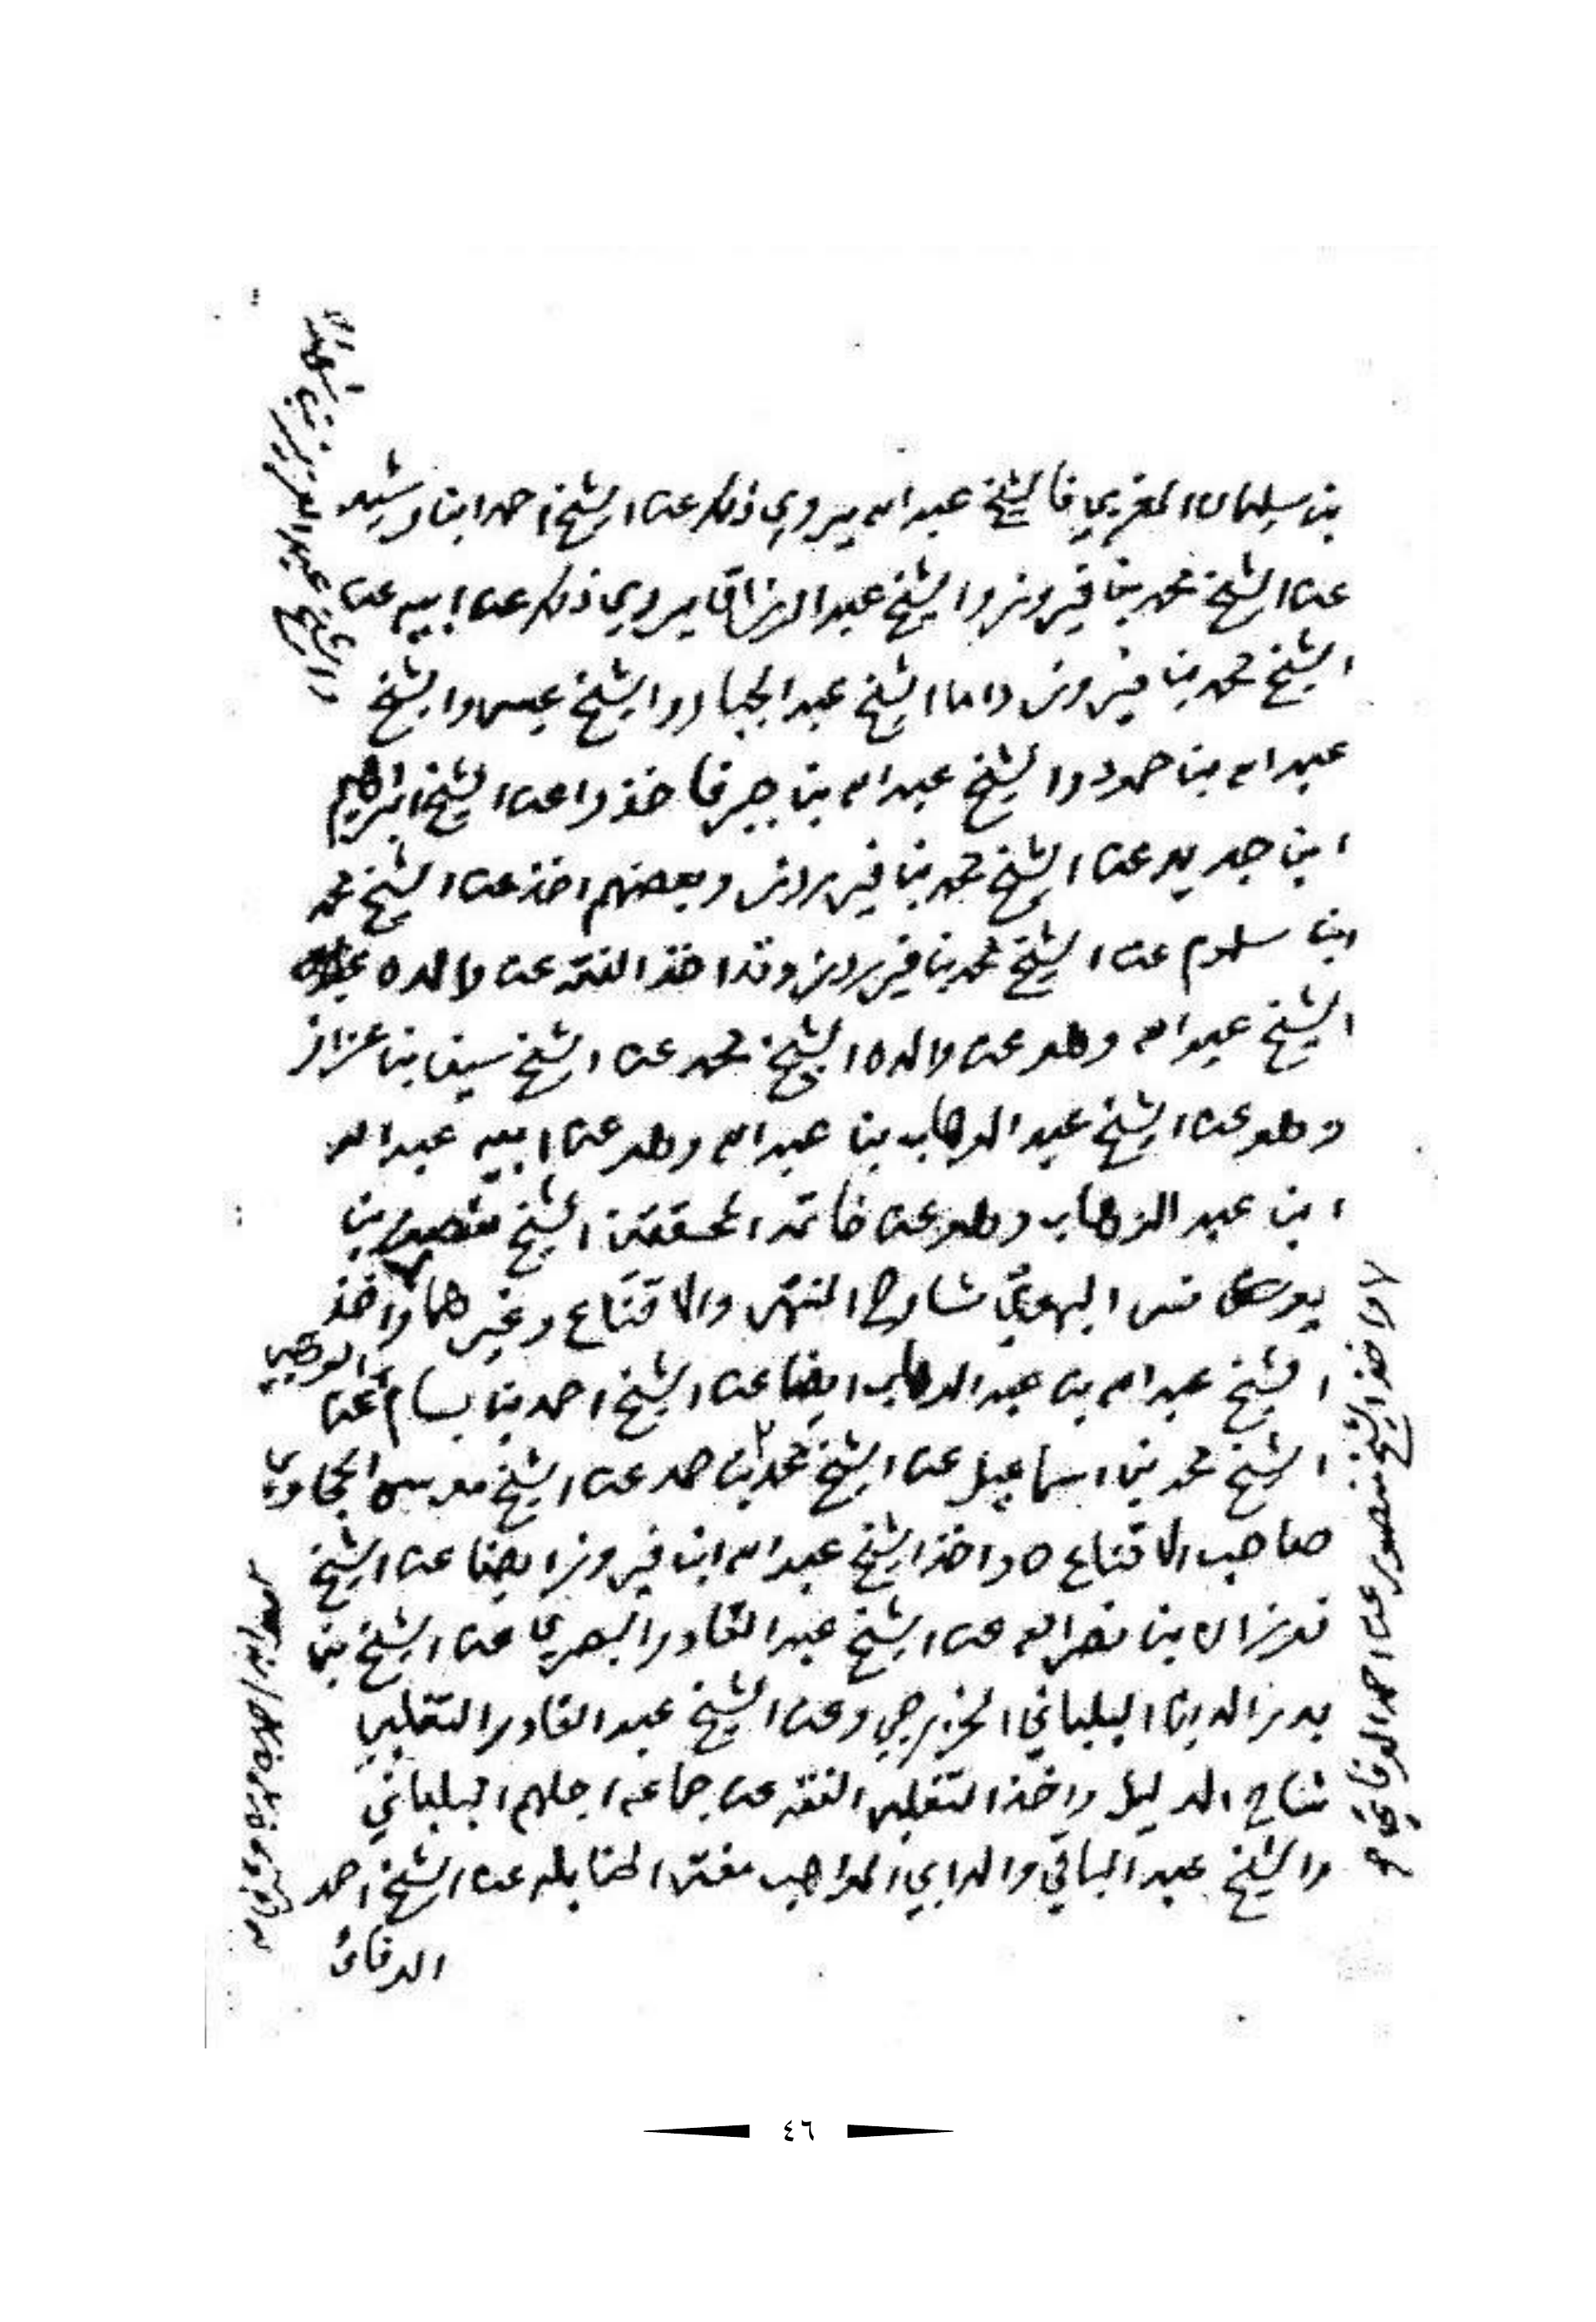 بن سليمان المغربي فالشيخ عبد الله يروي ذلك عن الشيخ احمد ابن رشيد
عن الشيخ محمد بن فيروز والشيخ عبد الرزاق يروي ذلك عن ابيه عن
الشيخ محمد بن فيروز واما الشيخ عبد الجبار والشيخ عيسى والشيخ
عبد الله بن حمود والشيخ عبد الله بن جبر فاخذوا عن الشيخ ابراهيم
ابن جديد عن الشيخ محمد بن فيروز وبعضهم اخذ عن الشيخ محمد
ابن سلوم عن الشيخ محمد بن فيروز وقد اخذ الفقه عن والده
الشيخ عبد الله وهو عن والده الشيخ محمد عن الشيخ سيف بن عزاز
وهو عن الشيخ عبد الوهاب بن عبد الله وهو عن ابيه عبد الله
ابن عبد الوهاب وهو عن خاتمة المحققين الشيخ منصور بن
يونس البهوتي شارح المنتهى والاقناع وغيرهما واخذ
الشيخ عبد الله بن عبد الوهاب ايضا عن الشيخ احمد بن بسام عن
الشيخ محمد بن اسماعيل عن الشيخ محمد بن حمد عن الشيخ موسى الحجاوي
صاحب الاقناع ه واخذ الشيخ عبد الله ابن فيروز ايضا عن الشيخ
فوزان بن نصر الله عن الشيخ عبد القادر البصري عن الشيخ بن
بدر الدين البلباني الخزرجي وعن الشيخ عبد القادر التغلبي
شارح الدليل واخذ التغلبي الفقه عن جماعه اجلهم البلباني
والشيخ عبد الباقي والد ابي المواهب مفتي الحنابله عن الشيخ احمد
الوفائي
واخذ الشيخ منصور عن احمد الوفائي
٤٦